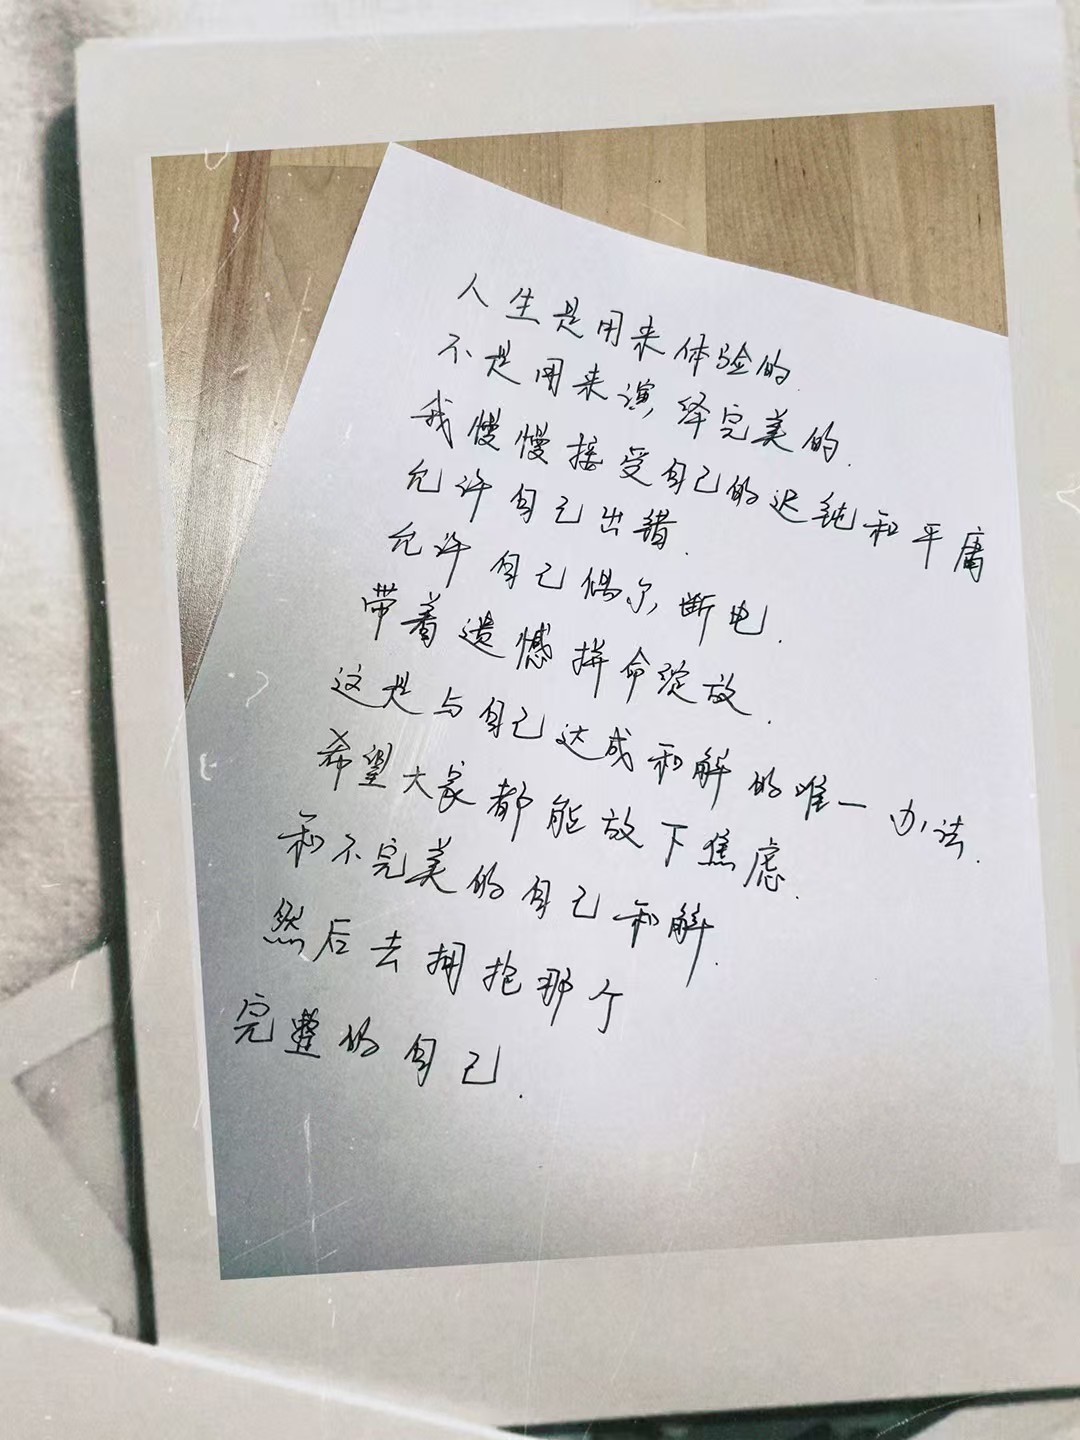 人生是用来体验的.
不是用来演绎完美的.
我慢慢接受自己的迟钝和平庸
允许自己出错.
允许自己偶尔断电.
带着遗憾拼命绽放.
这是与自己达成和解的唯一办法.
希望大家都能放下焦虑.
和不完美的自己和解.
然后去拥抱那个
完整的自己.